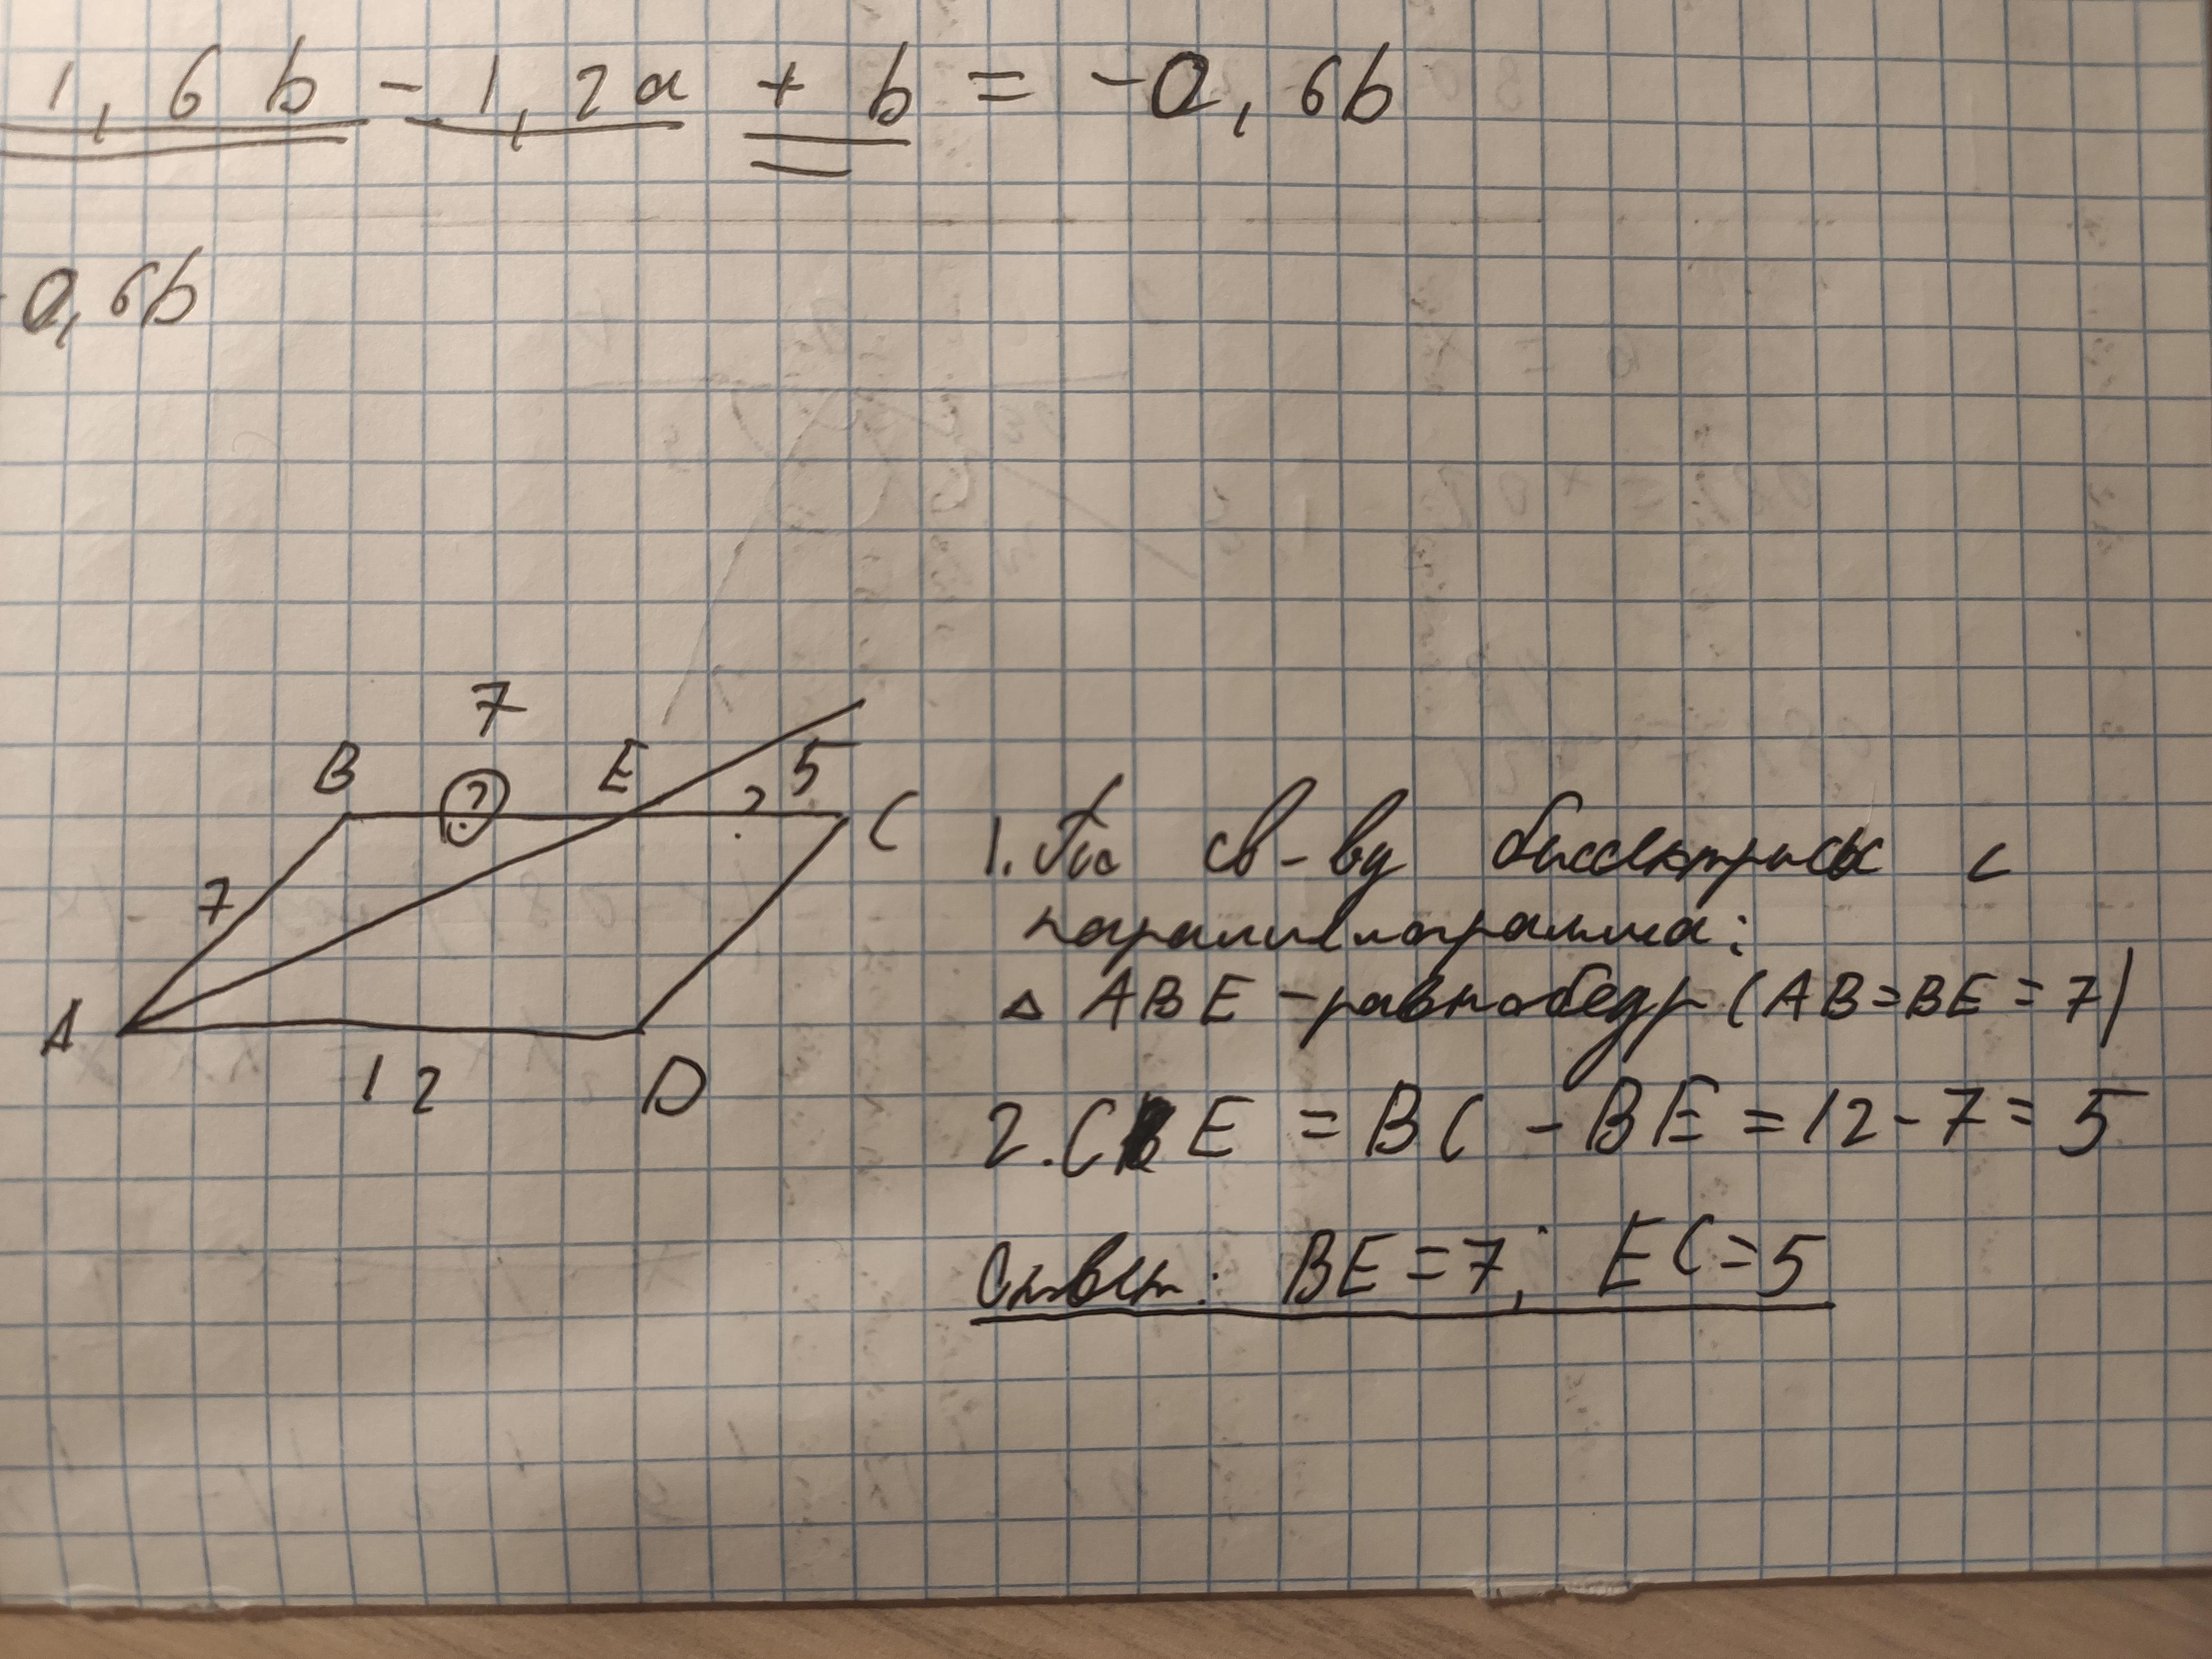 1,6b - 1,2a + b = -0,6b
0,6b
7
B ? E ? 5 C
7
A 12 D
1. По св-ву биссектрисы с
параллелограмма:
△ ABE - равнобедр (AB = BE = 7)
2. CE = BC - BE = 12 - 7 = 5
Ответ: BE = 7; EC = 5